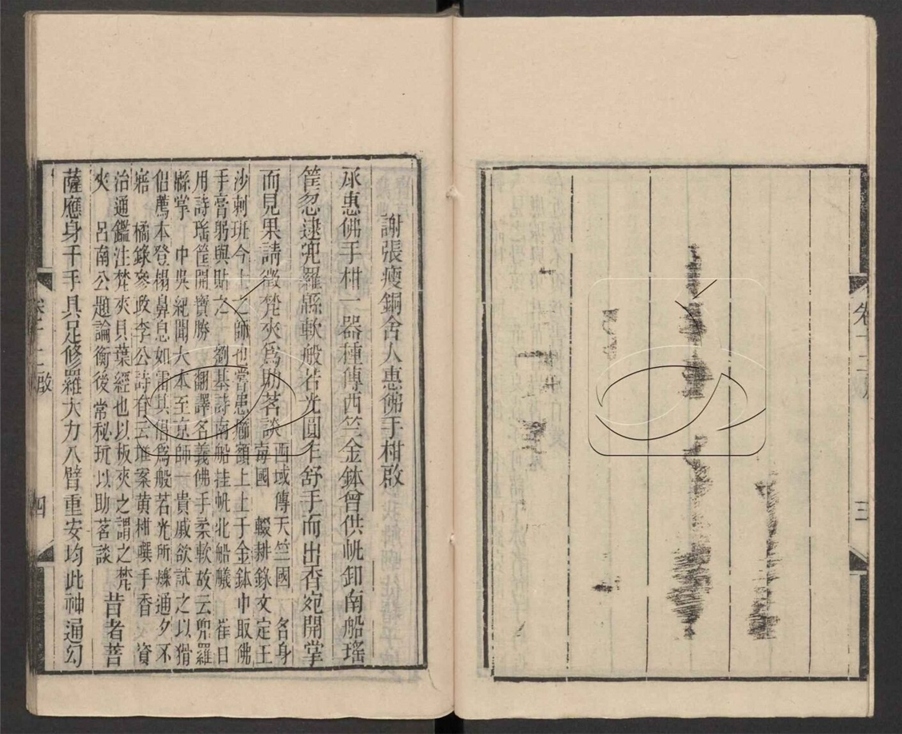 卷十二
三
謝張瘦銅舍人惠佛手柑啟
承惠佛手柑一器種傳西竺金鉢曾供帆卸南船瑤
筐忽逮兜羅緜軟般若光圓乍舒手而出香宛開掌
而見果請徵梵夾爲助茗談西域傳天竺國一名身
毒國 輟耕錄文定王
沙剌班今上之師也嘗患癤額上上于金鉢中取佛
手膏躬與貼之 劉基詩南船挂帆北船艤 崔日
用詩瑤筐開寶勝 翻譯名義佛手柔軟故云兜羅
緜掌 中吳紀聞大本至京師一貴戚欲試之以猾
倡薦本登榻鼻息如雷其倡爲般若光所爍通夕不
寤 橘錄參政李公詩有云堆案黃柑噀手香 資
治通鑑注梵夾貝葉經也以板夾之謂之梵
夾 呂南公題論衡後常秘玩以助茗談
昔者菩
薩應身千手具足修羅大力八臂重安均此神通勾
卷十二啟
四